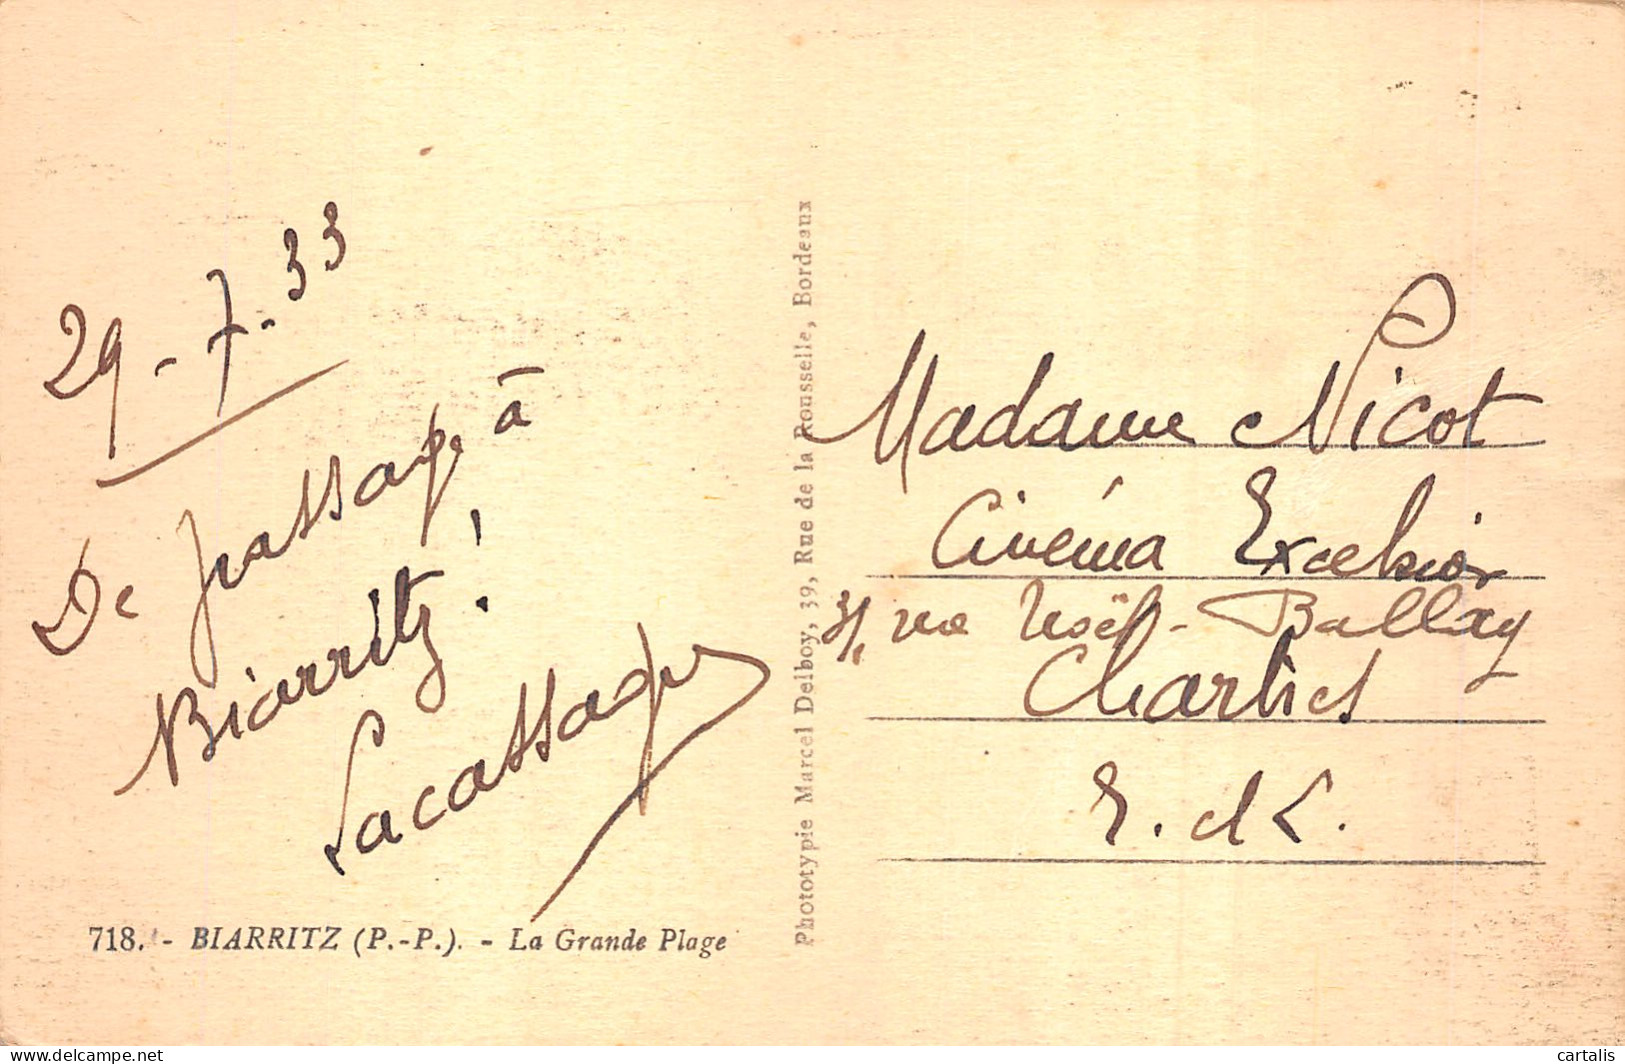 29-7-33
De passage à
Biarritz !
Lacassagne
718. - BIARRITZ (P.-P.). - La Grande Plage
Phototypie Marcel Delboy, 39, Rue de la Rousselle, Bordeaux
Madame Nicot
Cinéma Excelsior
rue Noël-Ballay
Chartres
E. et L.
cartalis